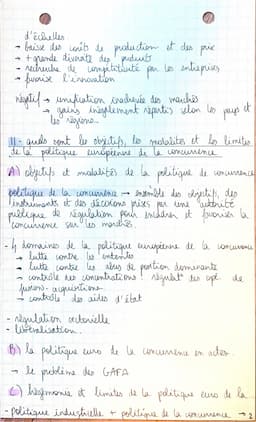 d'échelles
→ baisse des coûts de production et des prix
→ + grande diversité des produits
→ recherche de compétitivité par les entreprises
→ favorise l'innovation
négatif → unification inachevée des marchés
→ gains inégalement répartis selon les pays et
les régions
II - quels sont les objectifs, les modalités et les limites
de la politique européenne de la concurrence
A) objectifs et modalités de la politique de concurrence
politique de la concurrence → ensemble des objectifs, des
instruments et des décisions prises par une autorité
publique de régulation pour encadrer et favoriser la
concurrence sur les marchés.
- 4 domaines de la politique européenne de la concurrence
→ lutte contre les ententes
→ lutte contre les abus de position dominante
→ contrôle des concentrations : régulat° des opé. de
fusions-acquisitions
→ contrôle des aides d'état
- régulation sectorielle
- libéralisation
B) la politique euro de la concurrence en actes
→ le problème des GAFA
C) hégémonie et limites de la politique euro de la
- politique industrielle + politique de la concurrence → 2